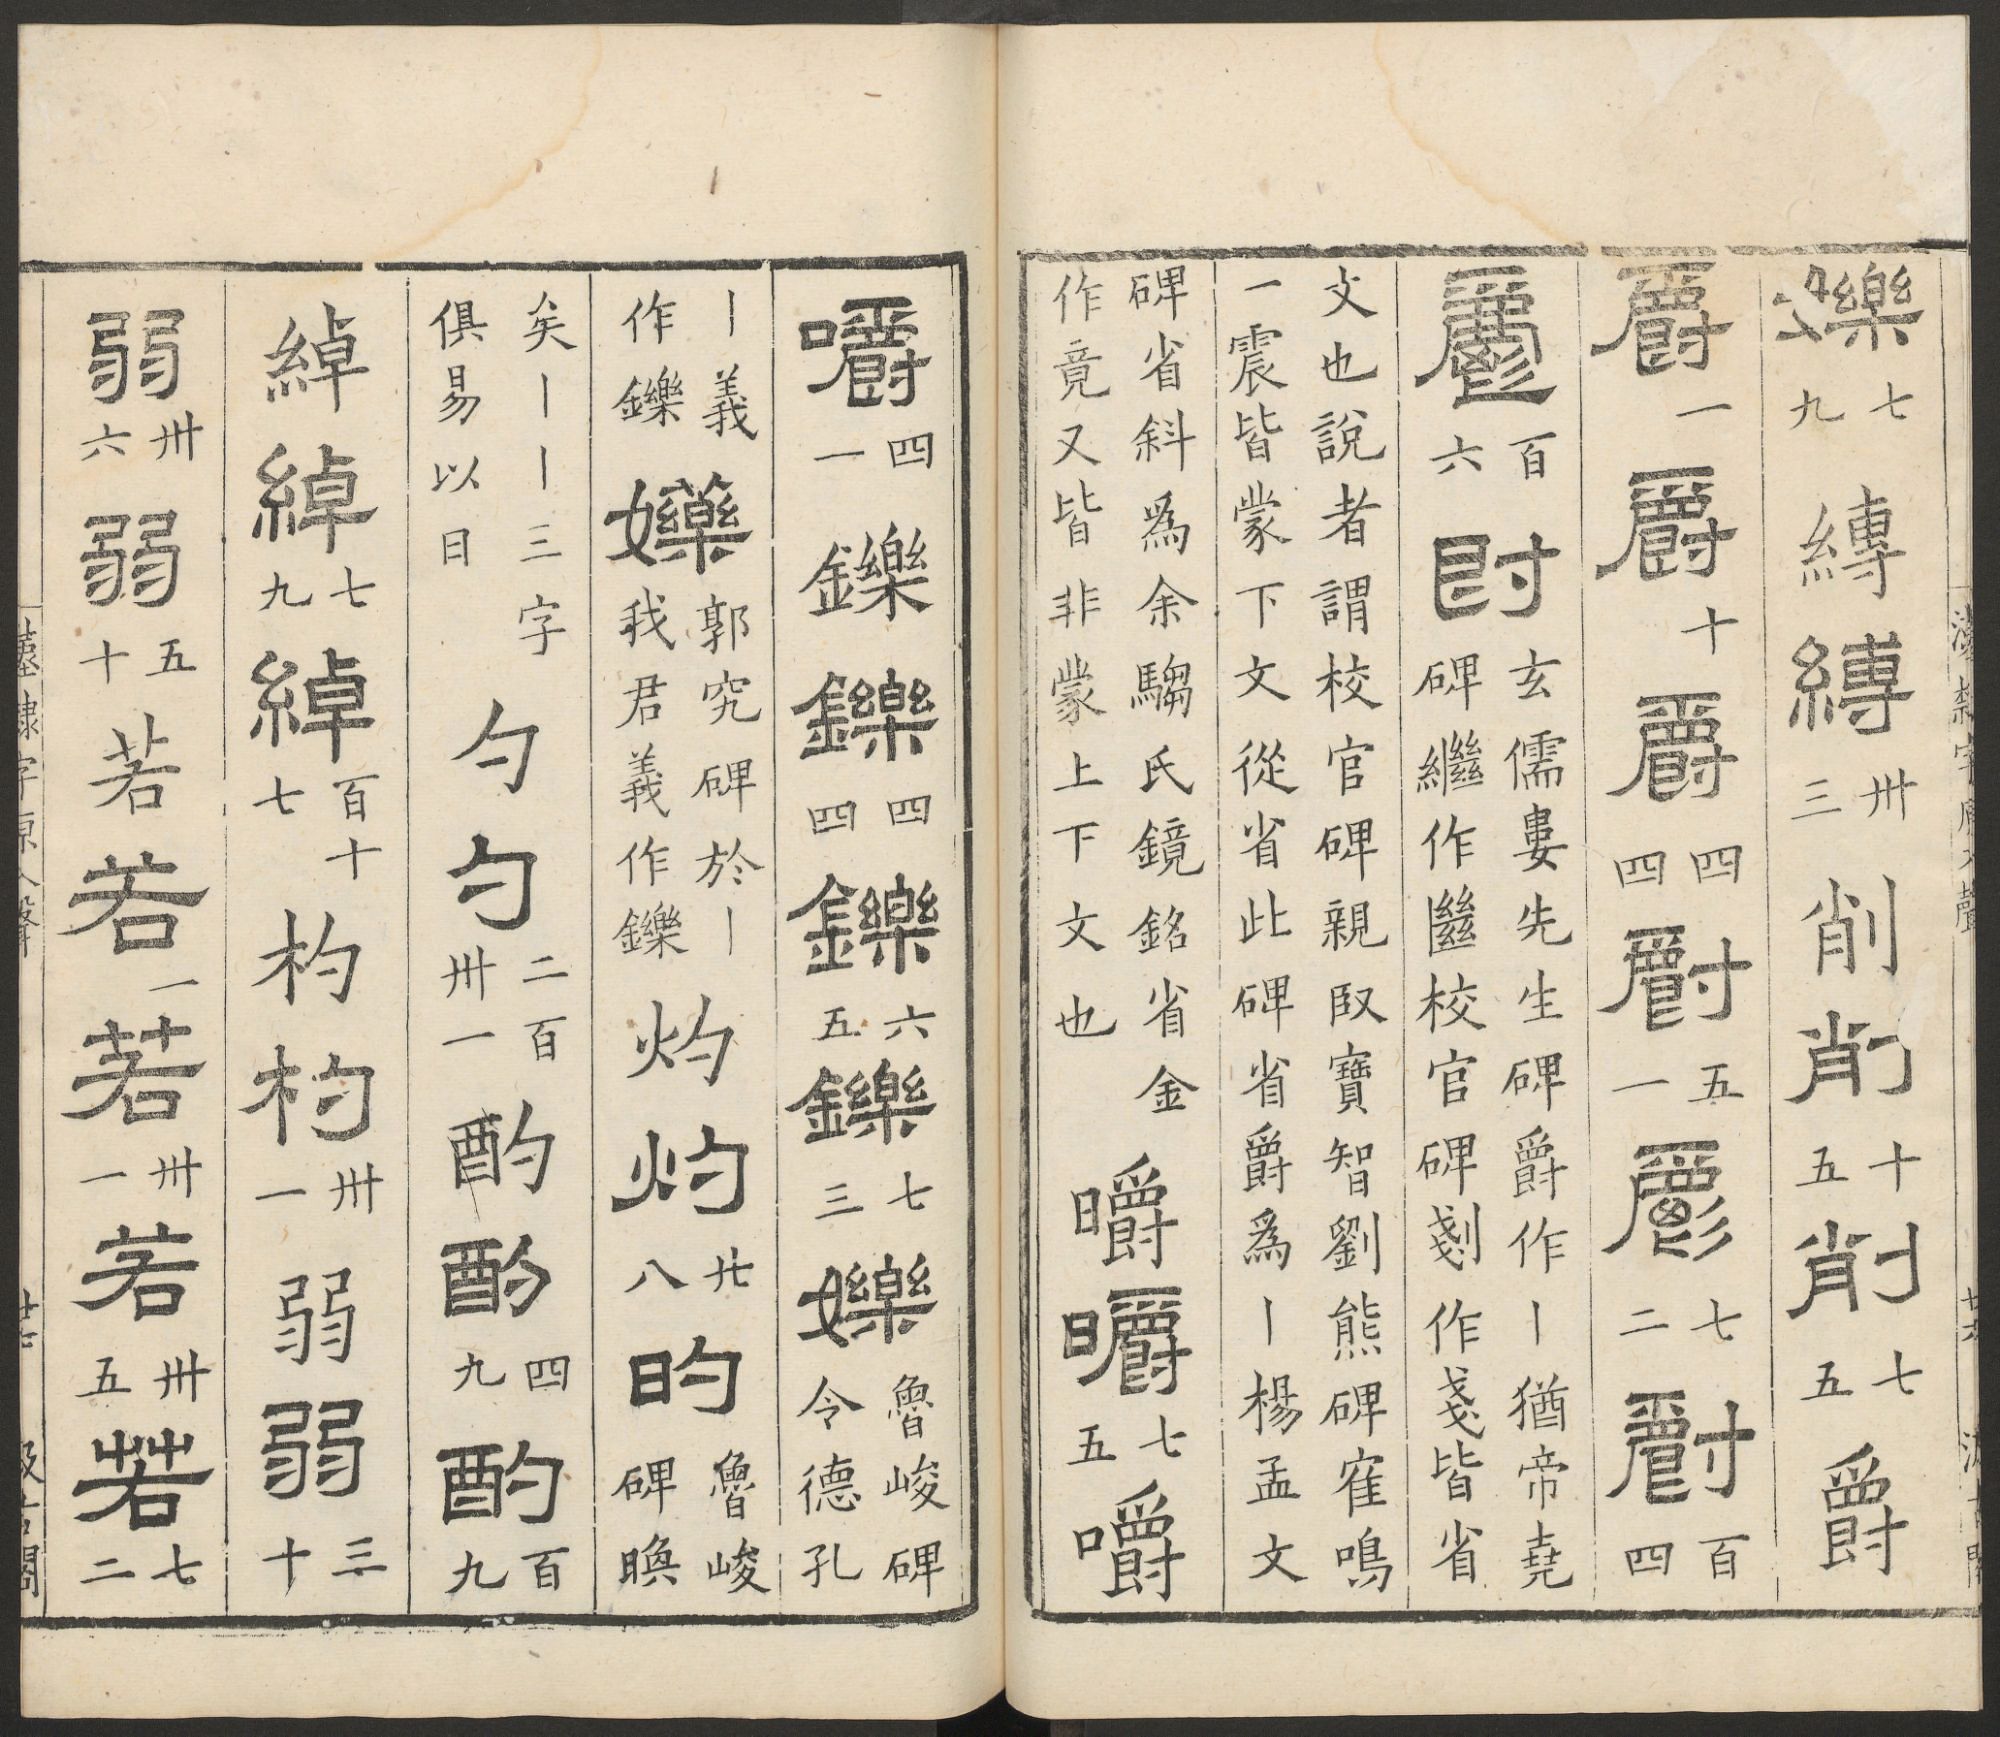 爍七九縛縛卅三削削十五削七五爵
爵一爵十爵四四爵五一爵七二爵百四
爵百六𣌾玄儒婁先生碑爵作丨猶帝堯
碑繼作㡭校官碑剗作戔皆省
文也說者謂校官碑親臤寶智劉熊碑寉鳴
一震皆蒙下文從省此碑省爵爲丨楊孟文
碑省斜爲余騶氏鏡銘省金
作竟又皆非蒙上下文也
嚼嚼七五嚼
嚼四一鑠鑠四四鑠六五鑠七三爍魯峻碑
令德孔
丨義郭究碑於丨
作鑠爍我君義作鑠灼灼廿八旳魯峻
碑㬇
矣丨丨三字
俱易以日勺勺二百卅一酌酌四九酌百九
綽綽七九綽百十七杓杓卅一弱弱三十
弱卅六弱五十若若一若卅一若卅五若七二
汲古閣